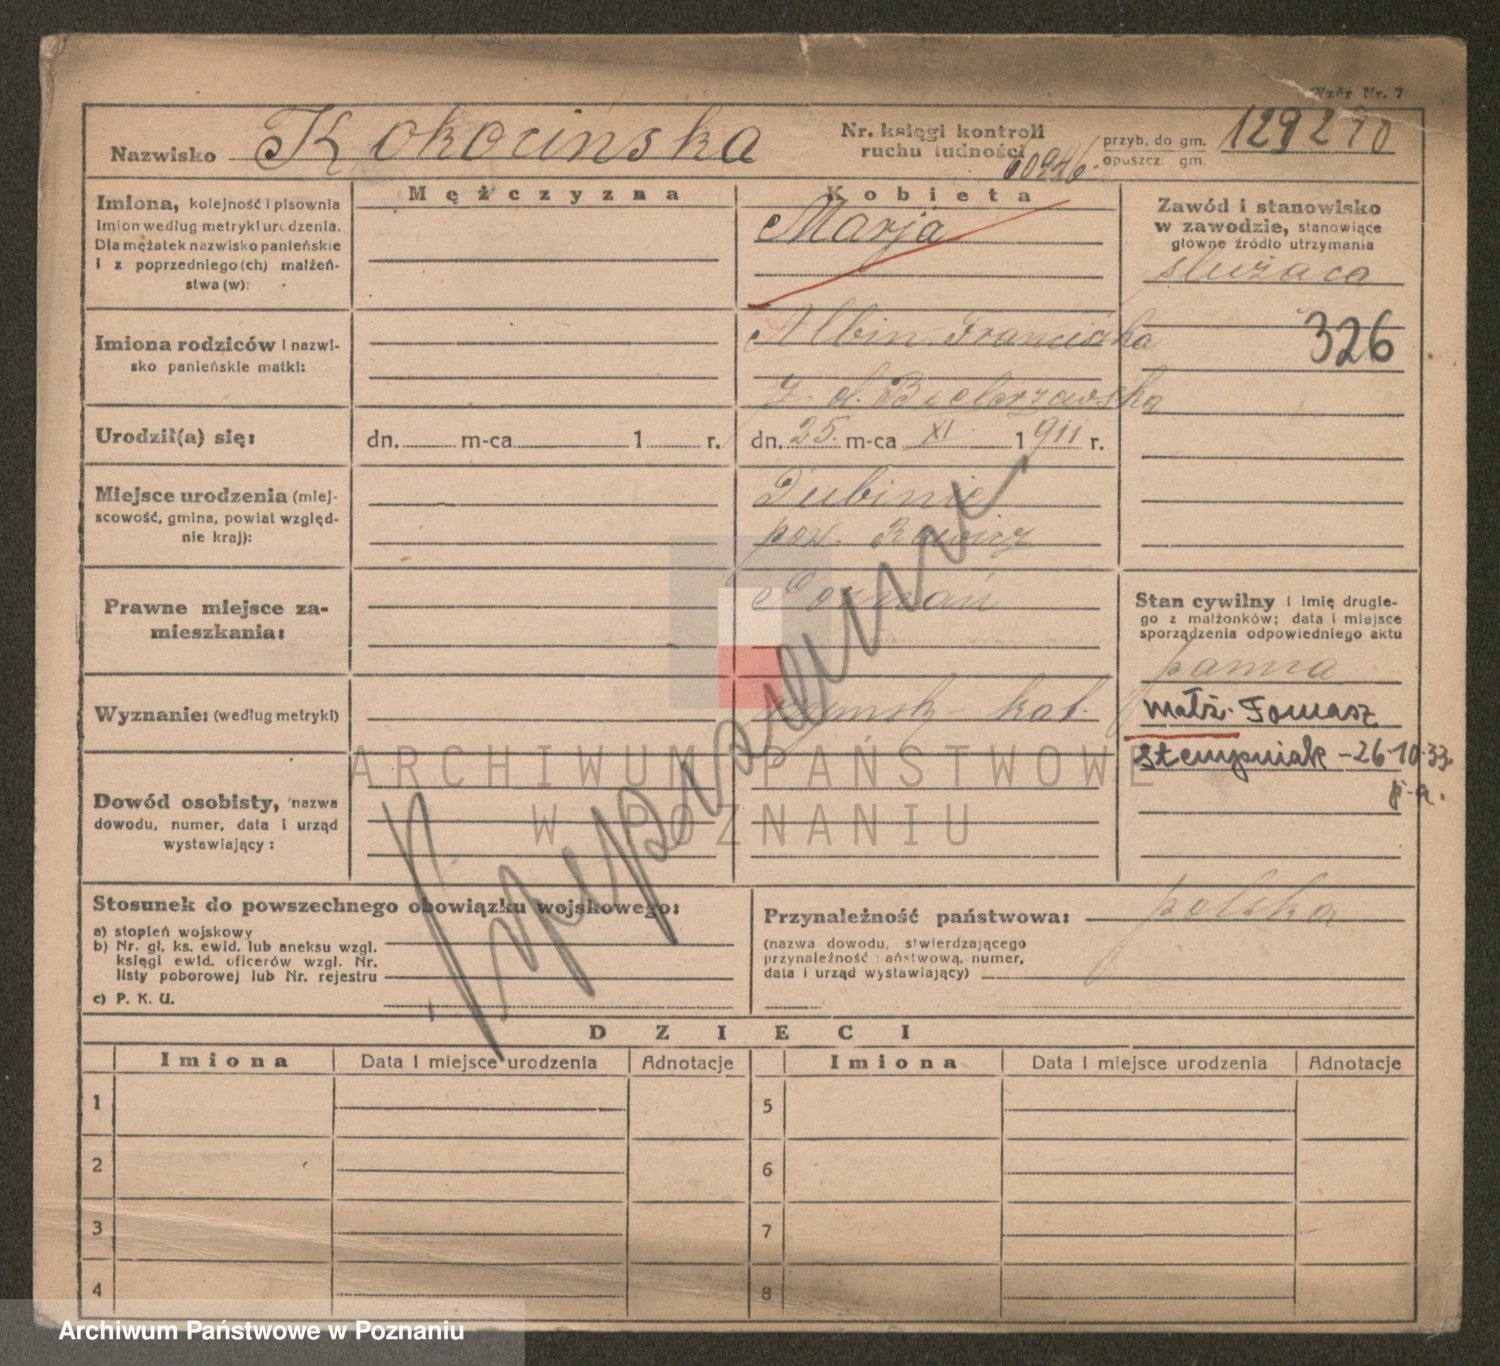 Wzór Nr. 7
Nazwisko Kokocińska
Nr. księgi kontroli ruchu ludności
przyb. do gm. 129270
opuszcz. gm.
Mężczyzna
Kobieta
Imiona, kolejność i pisownia
imion według metryki urodzenia.
Dla mężatek nazwisko panieńskie
i z poprzedniego(ch) małżeń-
stwa(w):
Marja
Zawód i stanowisko
w zawodzie, stanowiące
główne źródło utrzymania
służąca
326
Imiona rodziców i nazwi-
sko panieńskie matki:
Albin-Franciszka
z. d. Bielarzewska
Urodził(a) się:
dn. m-ca 1 r.
dn. 25. m-ca XI 1911 r.
Miejsce urodzenia (miej-
scowość, gmina, powiat względ-
nie kraj):
Dubinie
pow. Rawicz
Prawne miejsce za-
mieszkania:
Poznań
Stan cywilny i imię drugie-
go z małżonków; data i miejsce
sporządzenia odpowiedniego aktu
panna
małż. Tomasz
Stempniak - 26-10-33.
Wyznanie: (według metryki)
rzymsk-kat.
Dowód osobisty, nazwa
dowodu, numer, data i urząd
wystawiający:
Stosunek do powszechnego obowiązku wojskowego:
a) stopień wojskowy
b) Nr. gł. ks. ewid. lub aneksu wzgl.
księgi ewid. oficerów wzgl. Nr.
listy poborowej lub Nr. rejestru
c) P. K. U.
Przynależność państwowa: polska
(nazwa dowodu, stwierdzającego
przynależność państwową, numer,
data i urząd wystawiający)
DZIECI
Imiona Data i miejsce urodzenia Adnotacje Imiona Data i miejsce urodzenia Adnotacje
1 5
2 6
3 7
4 8
ARCHIWUM PAŃSTWOWE
W POZNANIU
Archiwum Państwowe w Poznaniu